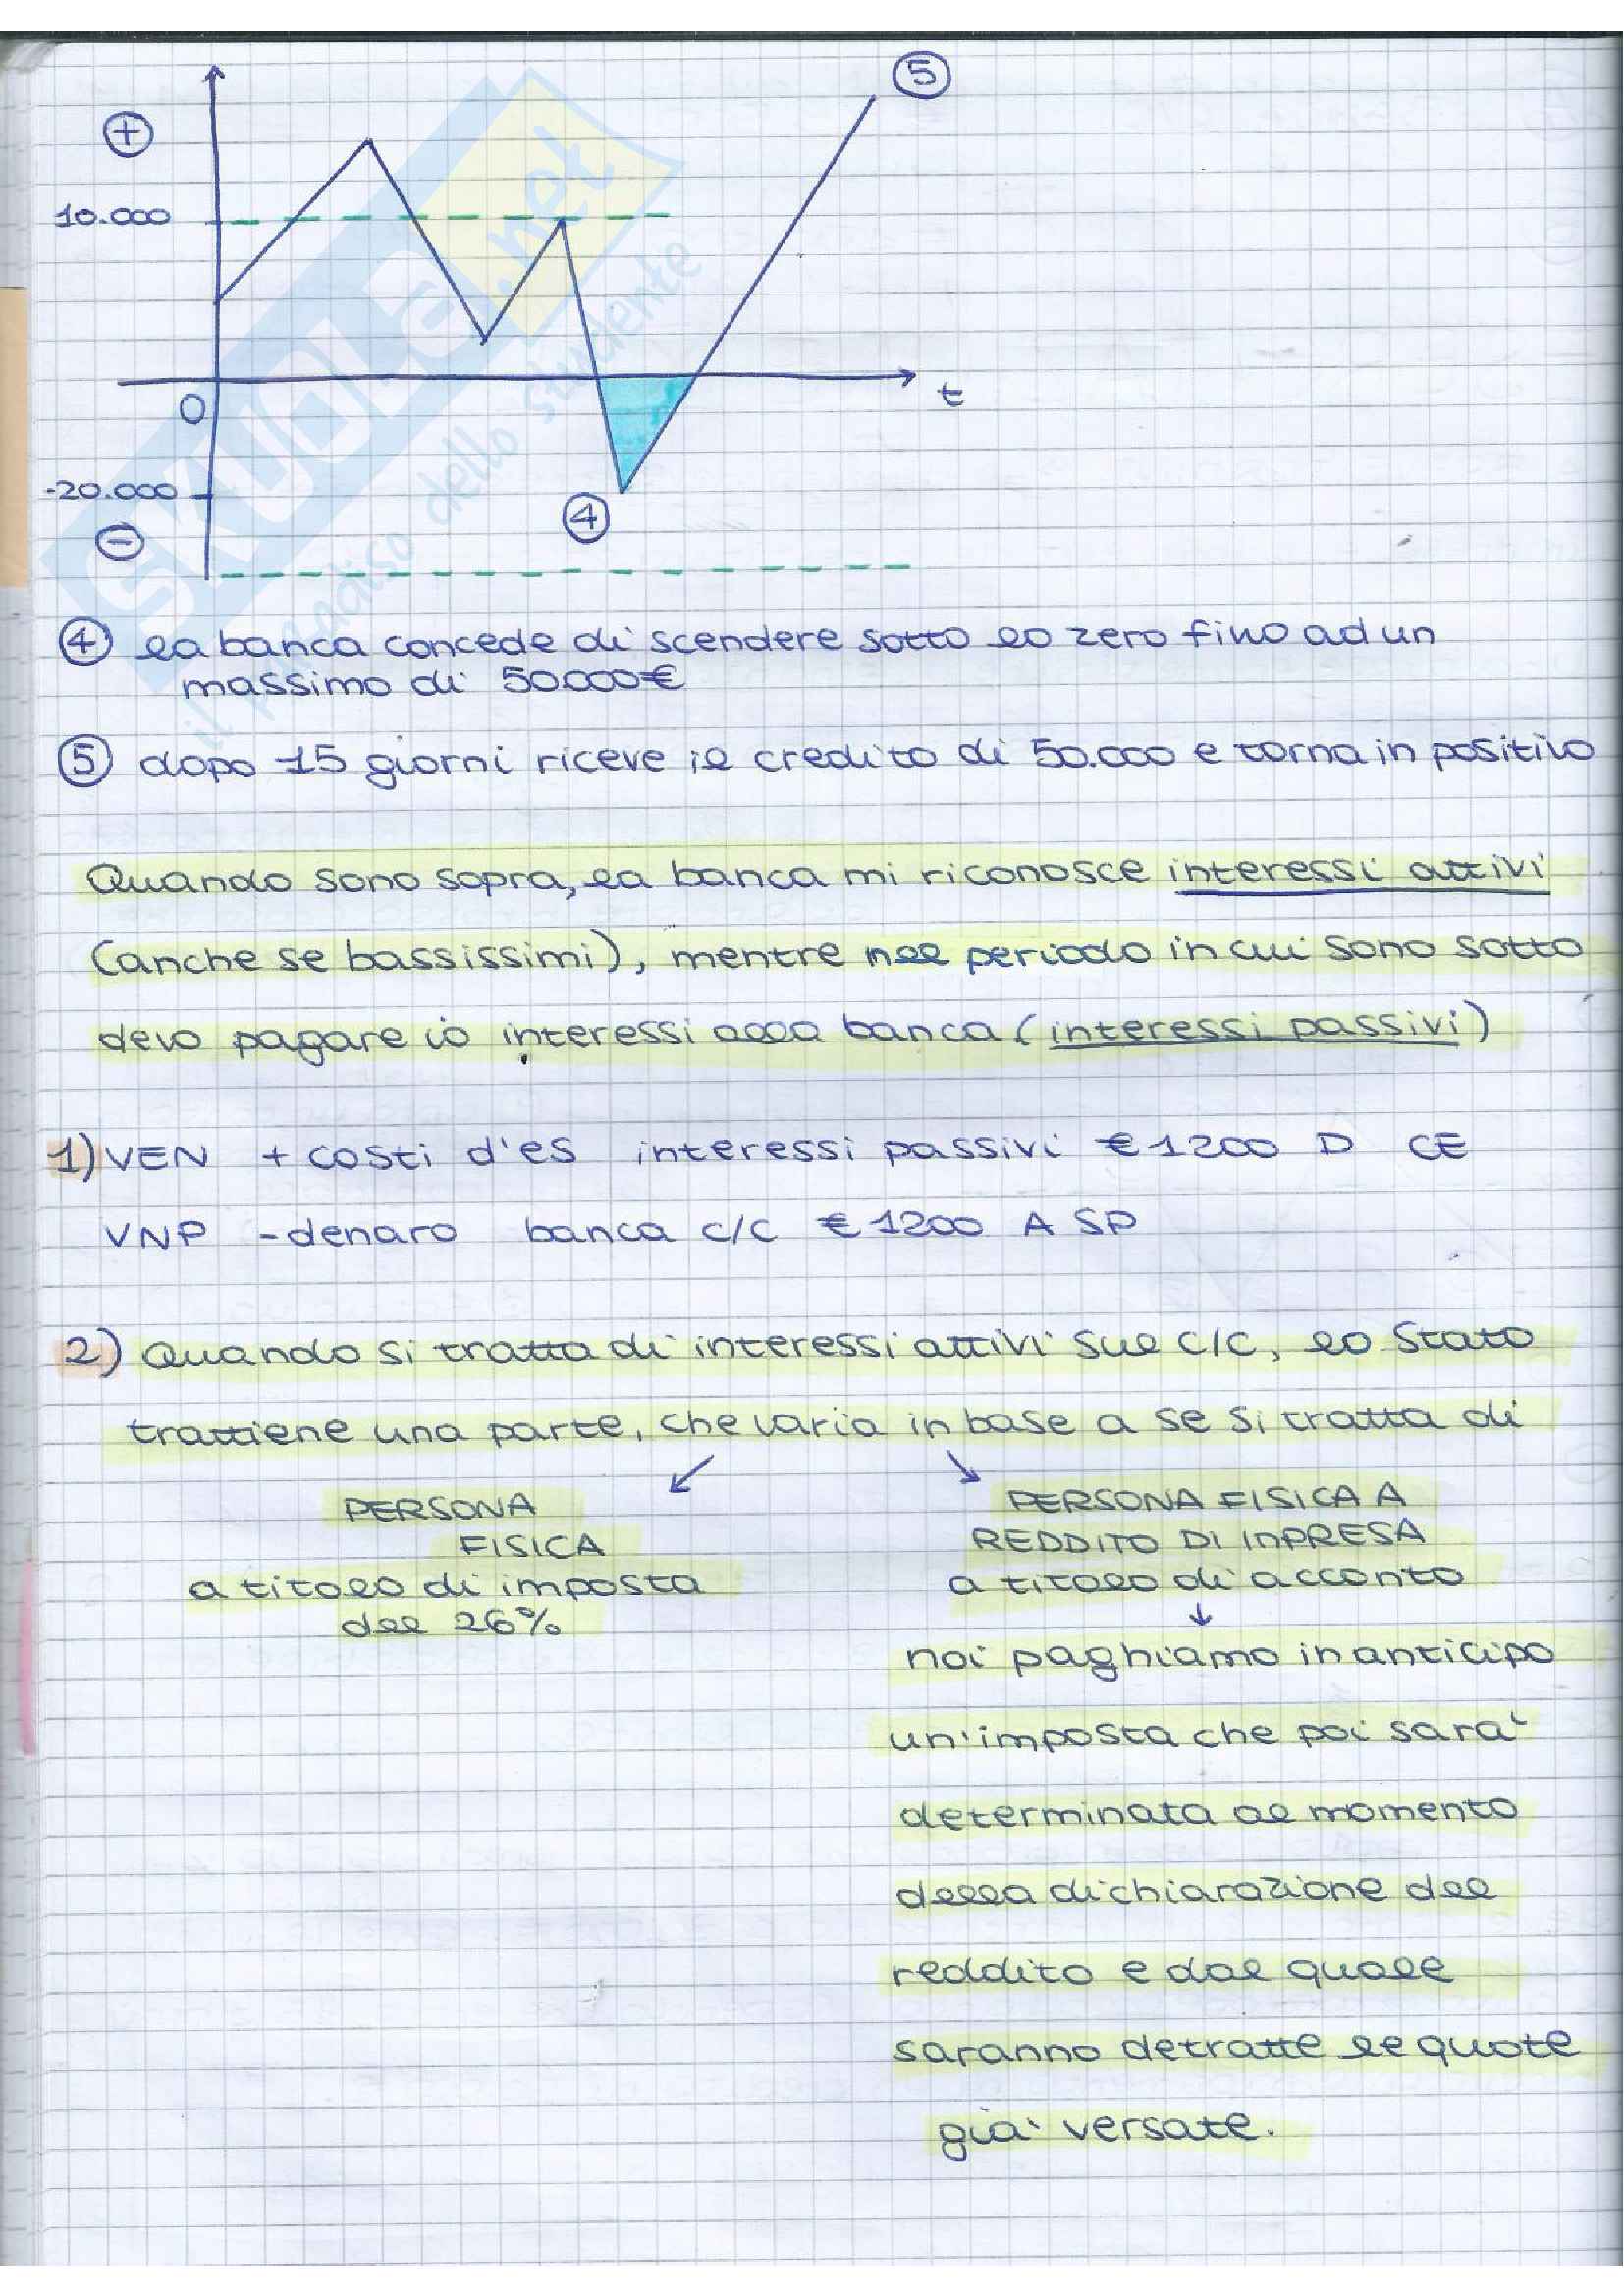 5
+
10.000
t
0
-20.000
4
-
4 la banca concede di scendere sotto lo zero fino ad un
massimo di 50.000€
5 dopo 15 giorni riceve il credito di 50.000 e torna in positivo
Quando sono sopra, la banca mi riconosce interessi attivi
(anche se bassissimi), mentre nel periodo in cui sono sotto
devo pagare io interessi alla banca (interessi passivi)
1) VEN + costi d'es interessi passivi € 1200 D CE
VNP - denaro banca c/c € 1200 A SP
2) Quando si tratta di interessi attivi sul c/c, lo Stato
trattiene una parte, che varia in base a se si tratta di
PERSONA
FISICA
a titolo di imposta
del 26%
PERSONA FISICA A
REDDITO DI INPRESA
a titolo di acconto
noi paghiamo in anticipo
un'imposta che poi sarà
determinata al momento
della dichiarazione del
reddito e dal quale
saranno detratte le quote
già versate.
SKUOLA.net
il paradiso dello studente